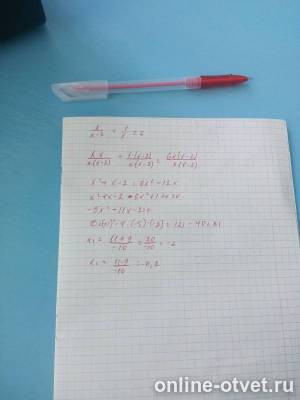 x/(x-2) + 1/x = 6
x·x/x(x-2) + 1·(x-2)/x(x-2) = 6x(x-2)/x(x-2)
x² + x - 2 = 6x² - 12x
x² + x - 2 - 6x² + 12x = 0
-5x² + 11x - 2 = 0
(11)² - 4·(-5)·(-2) = 121 - 40 = 81
x₁ = 11+9/-10 = 20/-10 = -2
x₂ = 11-9/-10 = -0,2
online-otvet.ru